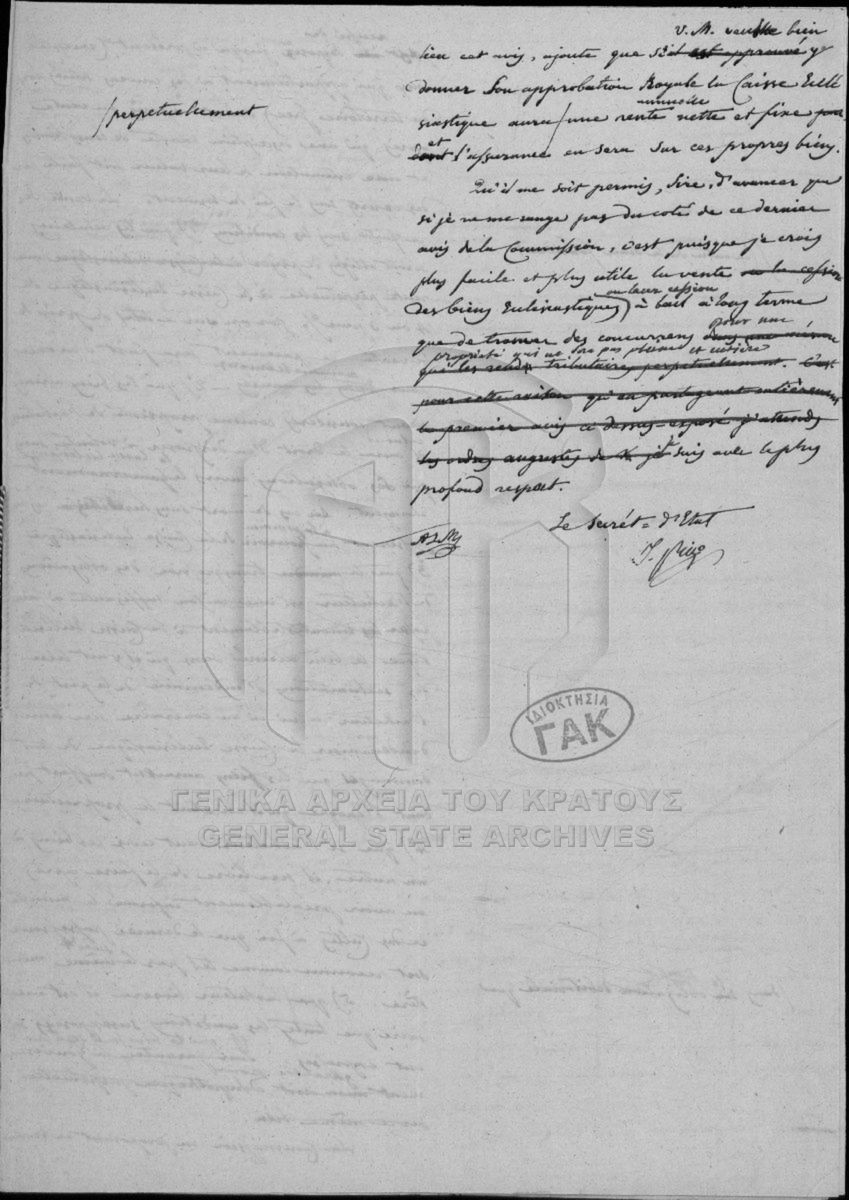 V. M. veuille bien
lieu cet avis, ajoute que s'il est approuvé y
donner Son approbation Royale la Caisse Ecclé
/perpetuellement
siastique aura / une rente nette et fixe
annuelle
et l'assurance en sera sur ces propres biens.
Qu'il me soit permis, Sire, d'avancer que
si je ne me range pas du coté de ce dernier
avis de la Commission, c'est puisque je crois
plus facile et plus utile la vente ou la cession
ou leur cession
des biens Eclésiastiques) à bail à long terme
pour une
que de trouver des concurrens
propriété qui ne sera pas pleine et entière
qui les rend tributaires perpetuellement. C'est
pour cette raison qu'en partageant entièrement
le premier avis ci dessus exposé j'attends
les ordres augustes de je suis avec le plus
profond respect.
Le Secrét= d'Etat
J. Rizo
ΙΔΙΟΚΤΗΣΙΑ
ΓΑΚ
ΓΕΝΙΚΑ ΑΡΧΕΙΑ ΤΟΥ ΚΡΑΤΟΥΣ
GENERAL STATE ARCHIVES